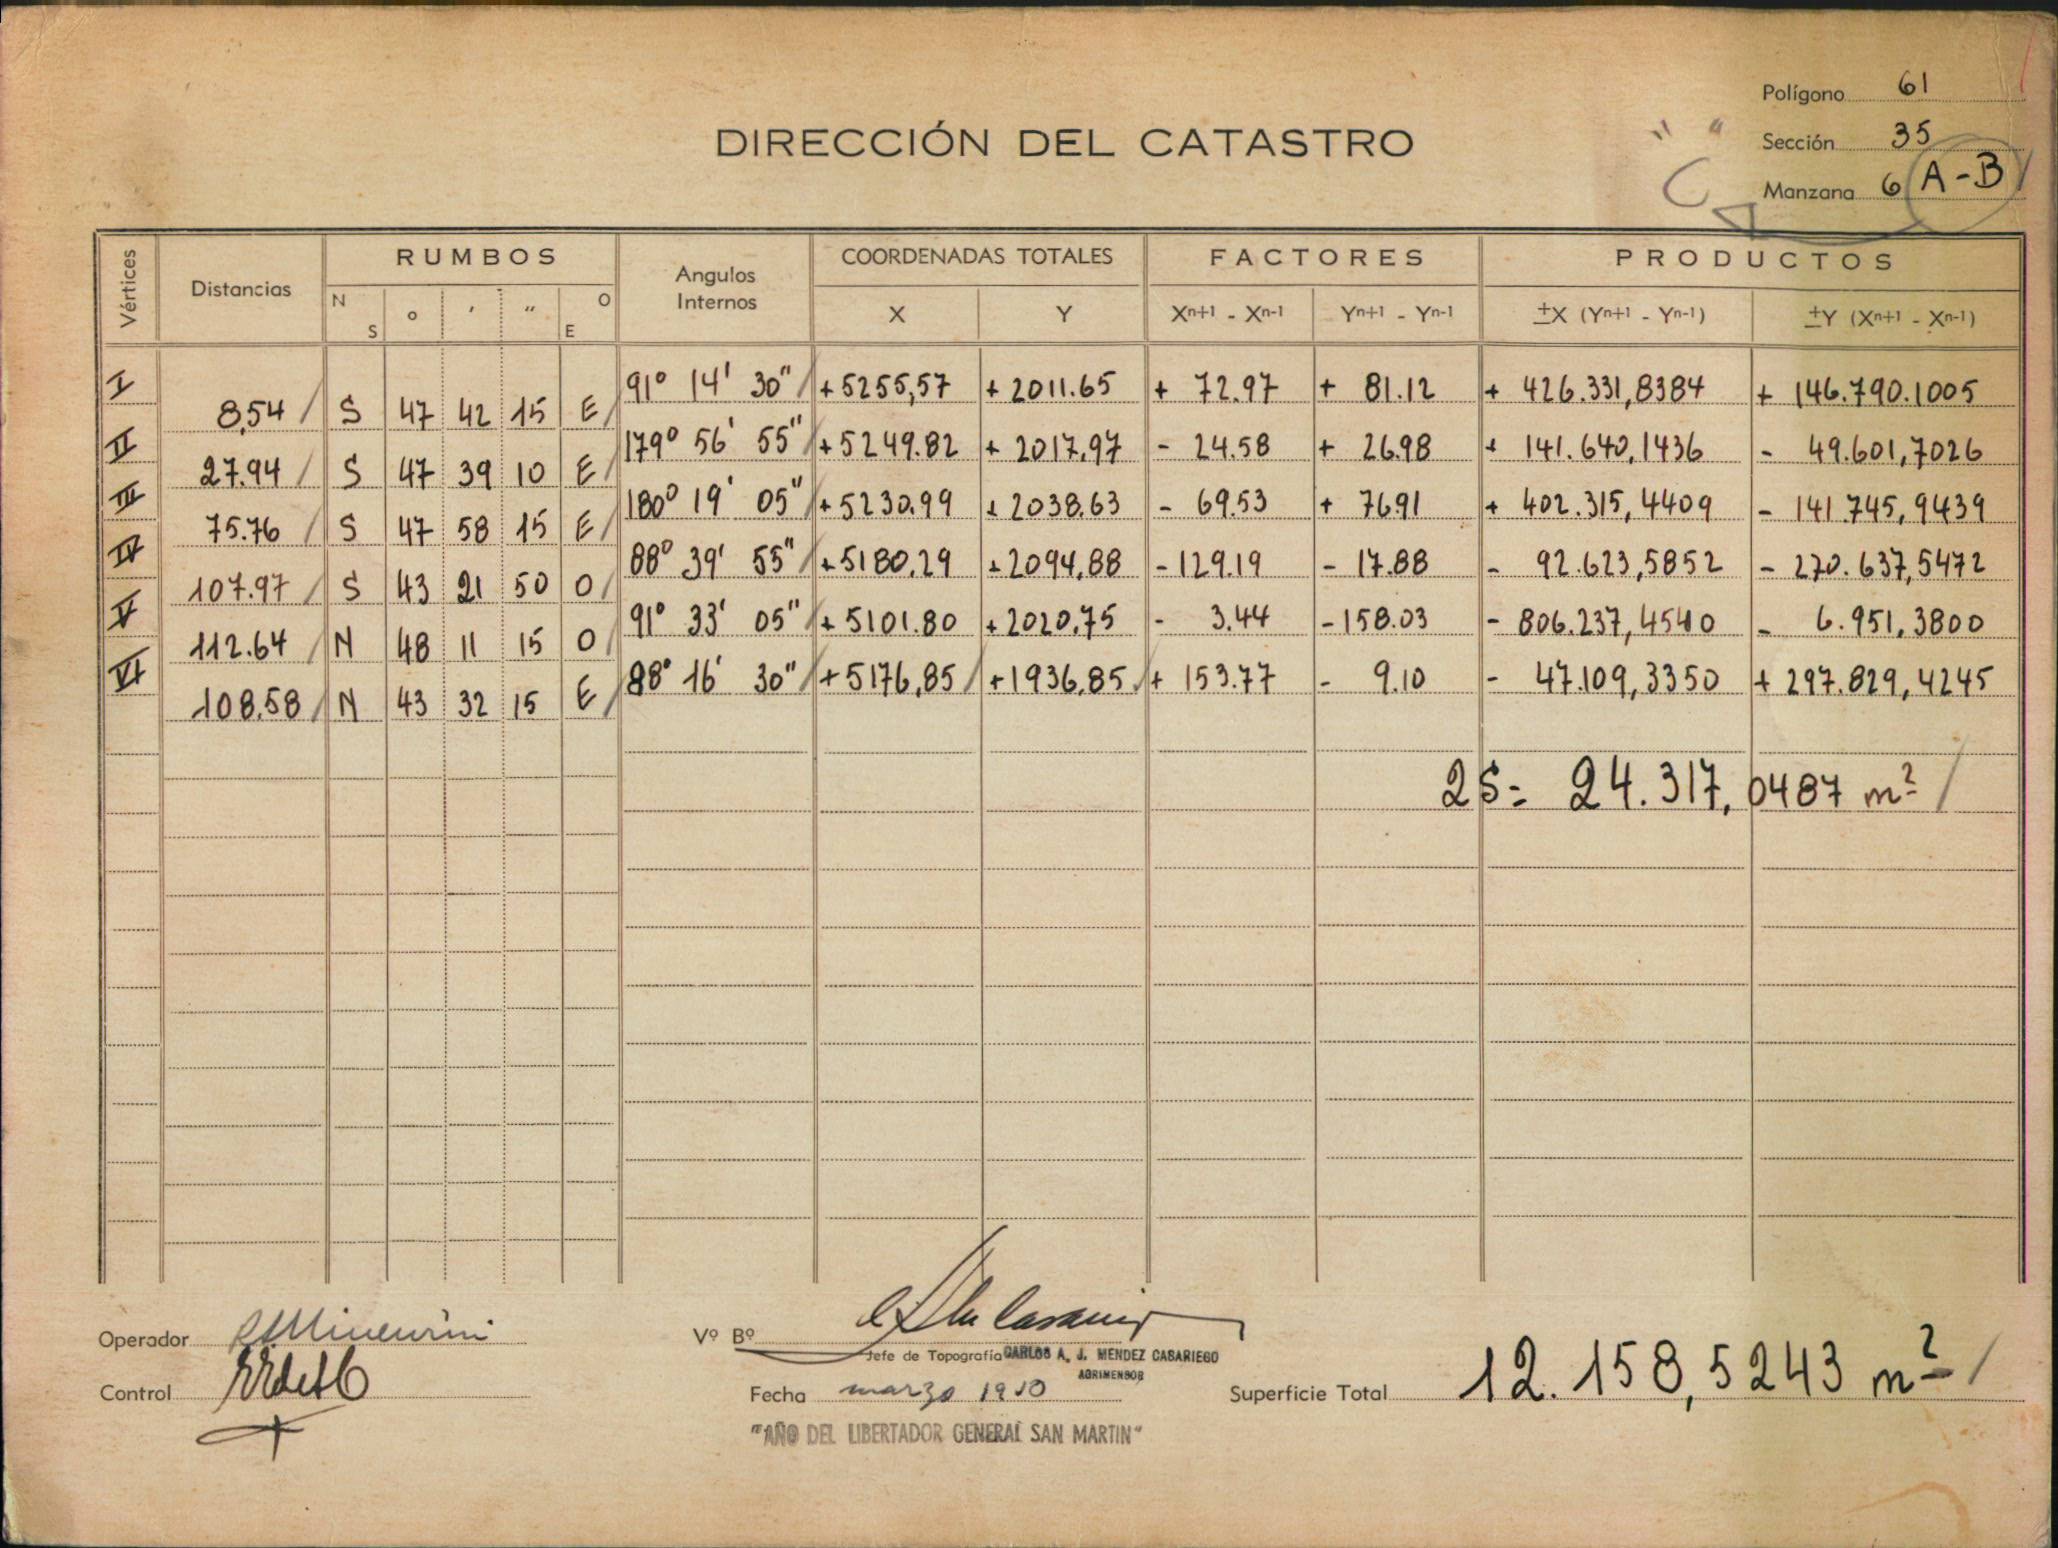 Polígono 61
DIRECCIÓN DEL CATASTRO
Sección 35
Manzana 6 A-B
Vértices Distancias RUMBOS Angulos Internos COORDENADAS TOTALES FACTORES PRODUCTOS
N S ° ' " O E X Y Xn+1 - Xn-1 Yn+1 - Yn-1 ±X (Yn+1 - Yn-1) ±Y (Xn+1 - Xn-1)
I 91° 14' 30" +5255,57 +2011.65 + 72.97 + 81.12 + 426.331,8384 + 146.790.1005
8,54 S 47 42 15 E
II 179° 56' 55" +5249.82 + 2017,97 - 24.58 + 26.98 + 141.640,1436 - 49.601,7026
27.94 S 47 39 10 E
III 180° 19' 05" +5230,99 +2038,63 - 69.53 + 76.91 + 402.315,4409 - 141.745,9439
75.76 S 47 58 15 E
IV 88° 39' 55" +5180,29 +2094,88 -129.19 - 17.88 - 92.623,5852 - 270.637,5472
107.97 S 43 21 50 O
V 91° 33' 05" + 5101.80 +2020,75 - 3.44 -158.03 - 806.237,4540 - 6.951,3800
112.64 N 48 11 15 O
VI 88° 16' 30" +5176,85 +1936,85 + 153.77 - 9.10 - 47.109,3350 + 297.829,4245
108,58 N 43 32 15 E
2S= 24.317,0487 m²
Operador
Vº Bº
Jefe de Topografía CARLOS A. J. MENDEZ CASARIEGO
AGRIMENSOR
Control
Fecha marzo 1950
Superficie Total 12.158,5243 m²
"AÑO DEL LIBERTADOR GENERAL SAN MARTIN"